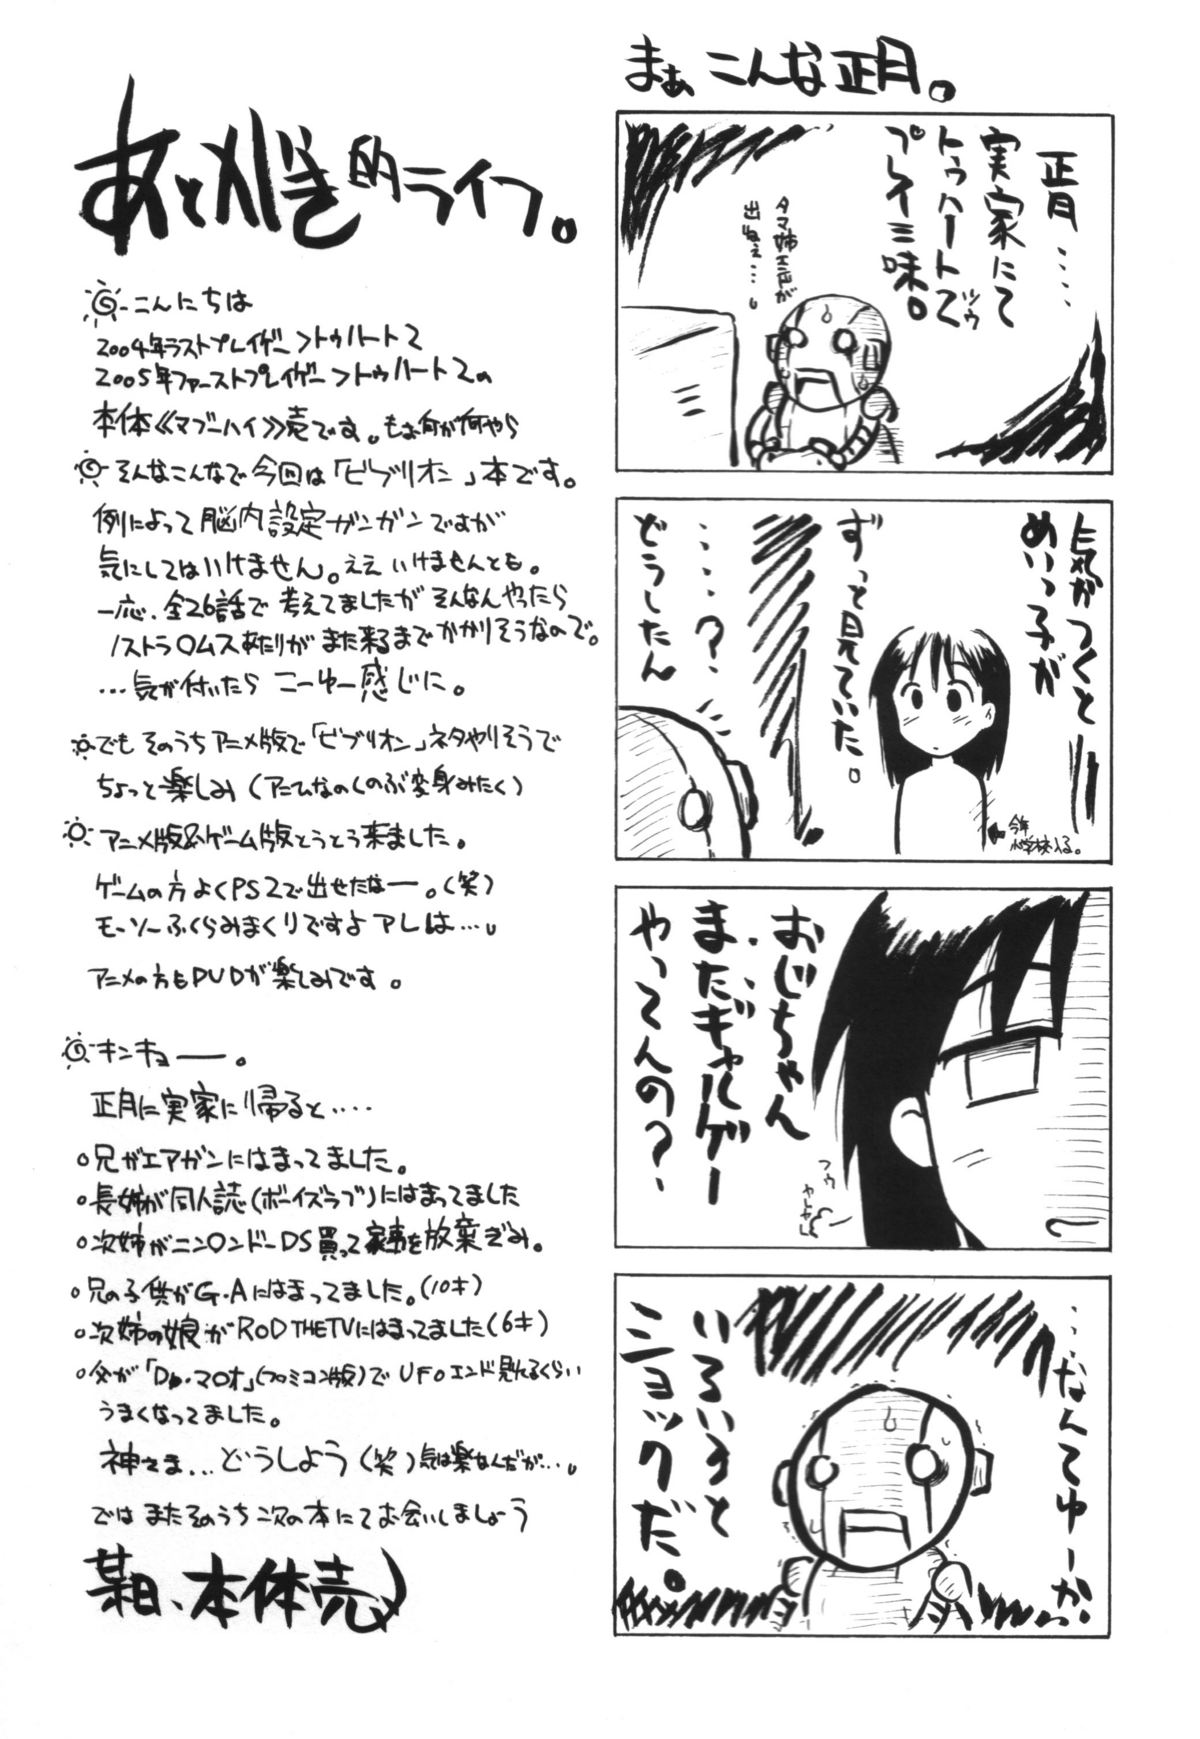 まぁ こんな正月。
正月‥‥
実家にて
トゥハート2(ツゥ)
プレイ三昧。
タマ姉エンドが
出ねぇ…。
気がつくと
めいっ子が
ずっと見ていた。
‥‥?
どうしたん
今年
小学校入る。
おじちゃん
またギャルゲー
やってんの?
フゥ
ヤレヤレ
…なんてゆーか
いろいろと
ショックだ。
あとがき的ライフ。
こんにちは
2004年ラストプレイゲー>トゥハート2
2005年ファーストプレイゲー>トゥハート2の
本体《マブーハイ》売です。もぉ何が何やら
そんなこんなで今回は「ビブリオン」本です。
例によって脳内設定ガンガンですが
気にしてはいけません。ええ いけませんとも。
一応、全26話で 考えてましたが そんなんやったら
ノストラ○ムスあたりが また来るまで かかりそうなので。
…気が付いたら こーゆー感じに。
でも そのうち アニメ版で「ビブリオン」ネタやりそうで
ちょっと楽しみ(アニムなのくのぶ変身みたく)
アニメ版&ゲーム版とうとう来ました。
ゲームの方 よくPS2で出せたなー。(笑)
モーソーふくらみまくりですよ アレは…。
アニメの方もDVDが楽しみです。
キンキョー。
正月に実家に帰ると‥‥
○兄がエアガンにはまってました。
○長姉が同人誌(ボーイズラブ)にはまってました
○次姉がニン○ンドーDS買って家事を放棄ぎみ。
○兄の子供がG・Aにはまってました。(10才)
○次姉の娘がROD THE TVにはまってました(6才)
○父が「Dr.マ○オ」(ファミコン版)でUFOエンド見れるくらい
うまくなってました。
神さま… どうしよう(笑)気は楽なんだが…。
では またそのうち 次の本にて お会いしましょう
某日、本体売